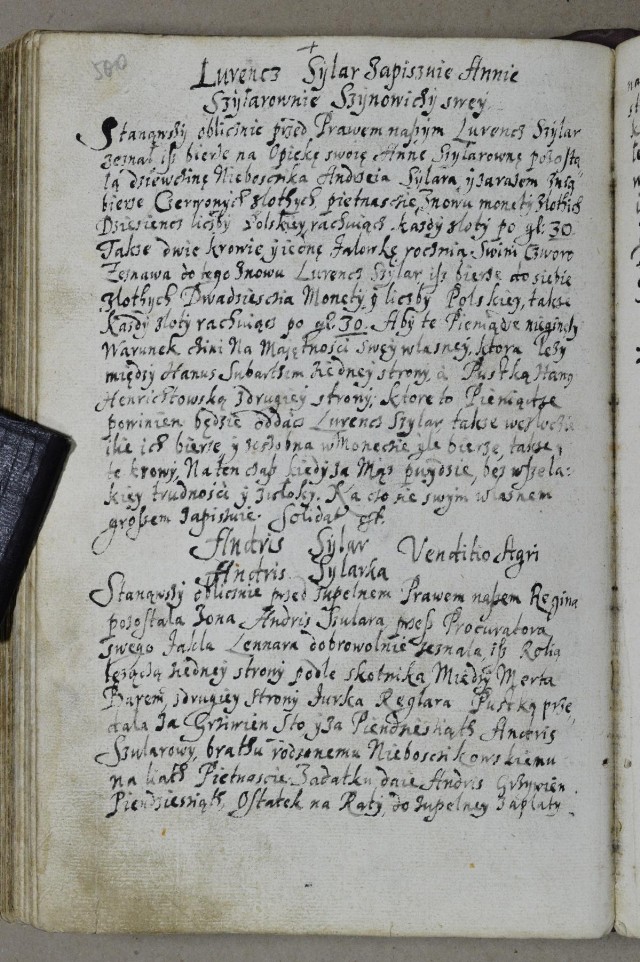 500
Lurencz Sylar Zapiszuie Annie
Szylarownie Szynowichy swey
Stanąwszy oblicznie przed Prawem naszym Lurencz Szylar
zeznał isz bierze na Opiekę swoię Annę Szylarownę pozosta
łą dziewczinę Nieboscika Andrzeia Sylara, y zarazem znią
bierze Czerwonych złothych pietnascie, Znowu monety złothich
Dziesiencz liczby Polskiey rachuiącz kazdy złoty po gł. 30
Takze dwie krowie y iednę Jalowkę rocznią: Swini Czworo
Zesnawa do tego znowu Lurencz Szylar, isz bierze do siebie
złothych Dwadziescia Monety y liczby Polskiey, takze
kazdy złoty rachuiącz po gł. 30. Aby te Pieniądze nieginęły
Warunek czini Na Majętności swey własney, ktora lezy
między Hanus Subartem zedney strony, a Pustką Hans
Henrichowską zdrugiey strony; ktore to Pieniądze
powinien będzie oddacz Lurencz Szylar, takze
ilie ich bierze, y zosobna w Monecie yle bierze, takze
te krowy, Na ten czas kiedy za Mąz puydzie, bez wszela:
kiey trudności y zwłoky. Na czo sie swym własnem
groszem zapisuie. Solidat est.
Andris Sylar
Andris Sylarka Venditio Agri
Stanąwszy oblicznie przed zupełnem Prawem naszem Regina
pozostała zona Andris Szulara przess Procuratora
swego Jakla Lennara dobrowolnie zeznała, isz Rolią
lezącą zedney strony podle skotnika Między Merta
Burem, zdrugiey strony Jurka Reglara Pustką prze,
dala za Grziwien Sto y za Piendziesiąth Andris
Szularowy, brathu rodzonemu Nieboscikowskiemu
na liath Pietnascie. Zadatku daie Andris Grzywien
Piendziesiąth, Ostatek na Raty, do zupełney zapłaty